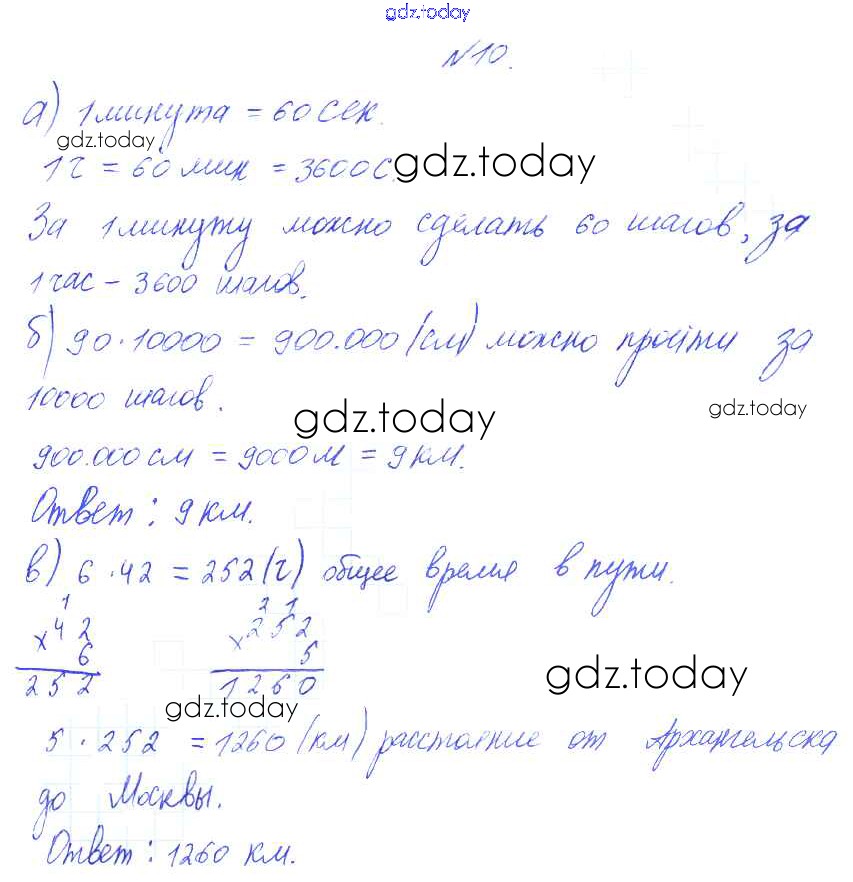 gdz.today
№10.
а) 1 минута = 60 сек.
gdz.today
1 ч = 60 мин = 3600 с. gdz.today
За 1 минуту можно сделать 60 шагов, за
1 час - 3600 шагов.
б) 90·10000 = 900.000 (см) можно пройти за
10000 шагов.
gdz.today gdz.today
900.000 см = 9000 м = 9 км.
Ответ: 9 км.
в) 6·42 = 252 (ч) общее время в пути.
1 2 1
×42 ×252
6 5
252 1260 gdz.today
gdz.today
5·252 = 1260 (км) расстояние от Архангельска
до Москвы.
Ответ: 1260 км.